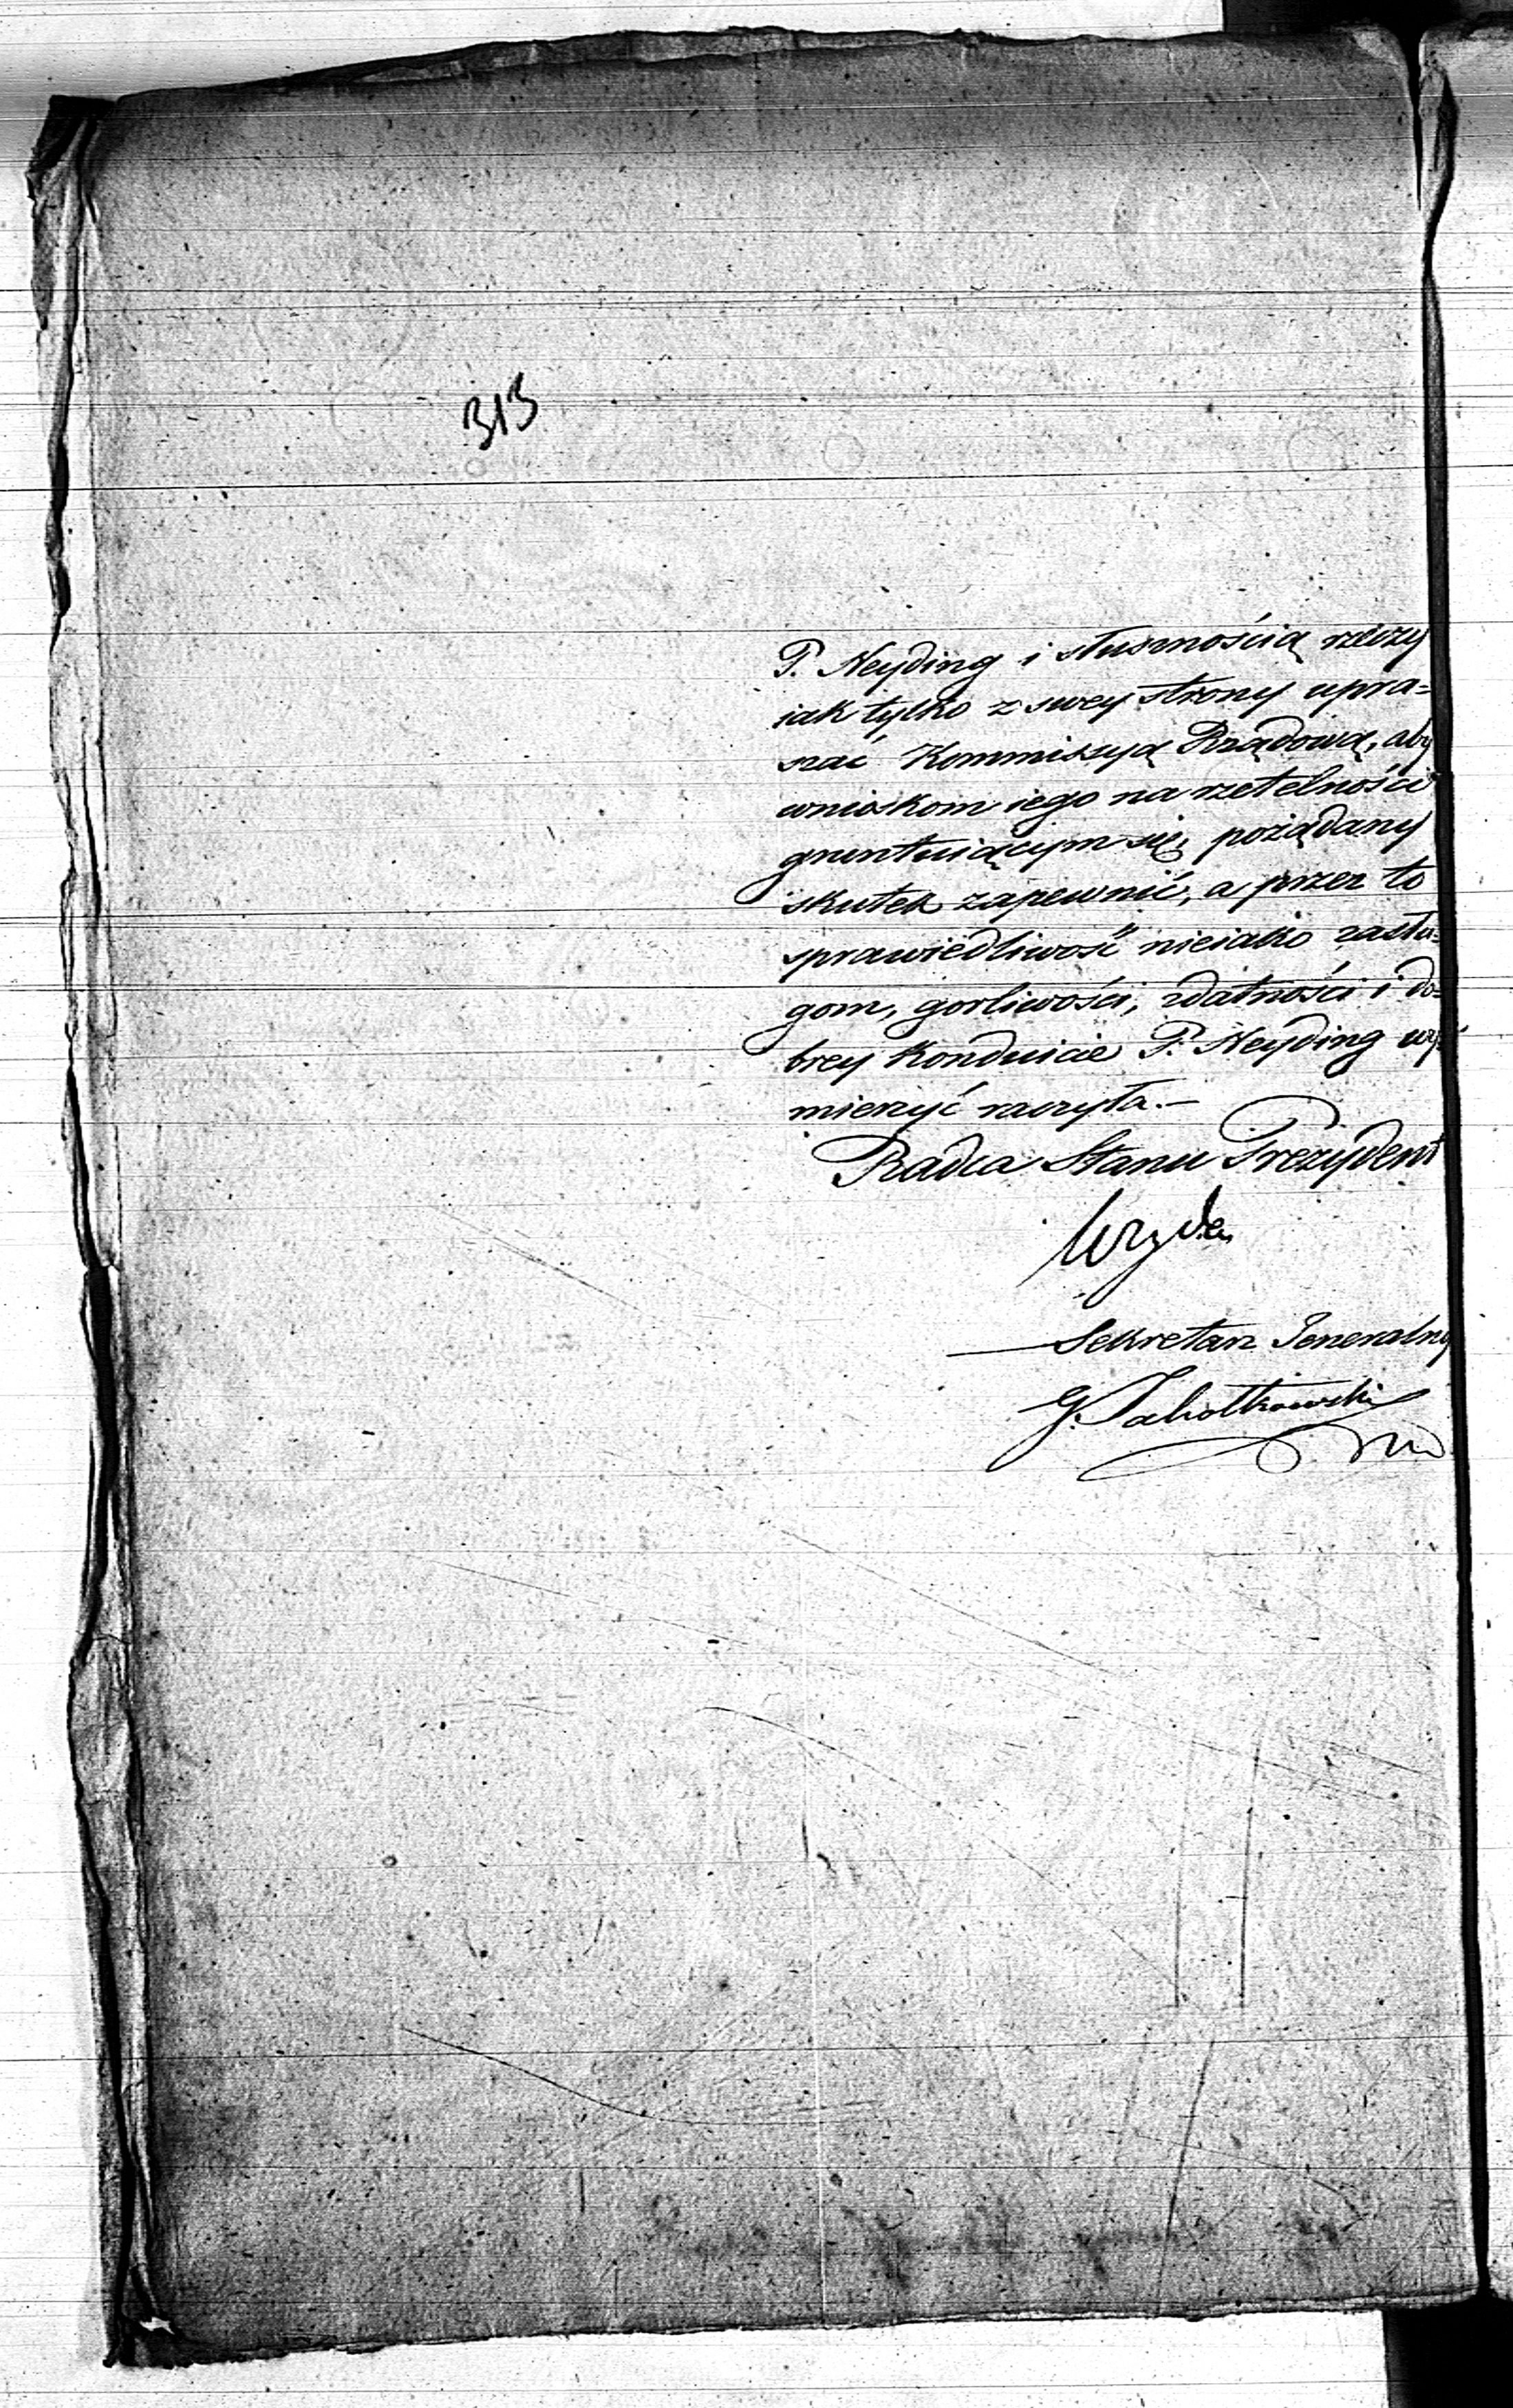 313
P. Neyding i słusznością rzeczy
iak tylko z swey strony upra=
szać Kommissyą Rządową, aby
wnioskom iego na rzetelności
gruntuiącym się, pożądany
skutek zapewnić, a przez to
sprawiedliwość nieiako zasłu=
gom, gorliwości, zdatności i do=
brey konduicie P. Neyding wy=
mierzyć raczyła.—
Radca Stanu Prezydent
Sekretarz Jeneralny